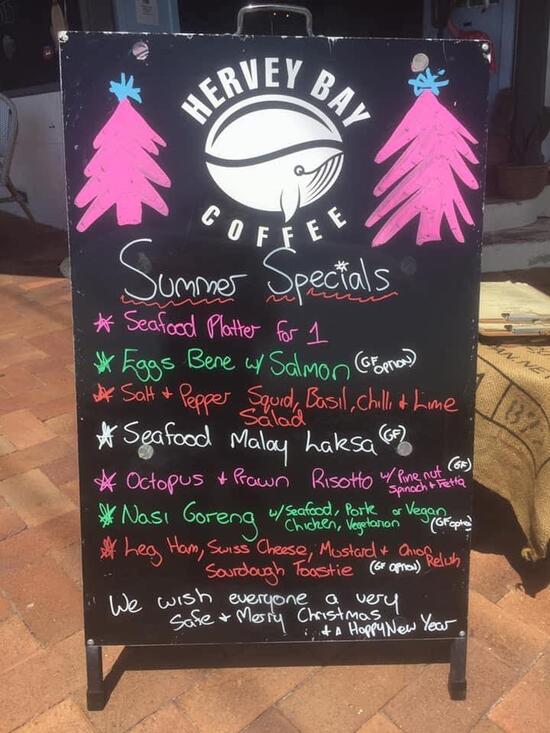 HERVEY BAY
COFFEE
Summer Specials
Seafood Platter for 1
Eggs Bene w/ Salmon (GF OPTION)
Salt + Pepper Squid, Basil, Chilli + Lime
Salad
Seafood Malay Laksa (GF)
Octopus + Prawn Risotto w/ Pine nut (GF)
Spinach + Fetta
Nasi Goreng w/ Seafood, Pork or Vegan
Chicken, Vegetarian (GF option)
Leg Ham, Swiss Cheese, Mustard + Onion Relish
Sourdough Toastie (GF option)
We wish everyone a very
Safe + Merry Christmas
+ A Happy New Year